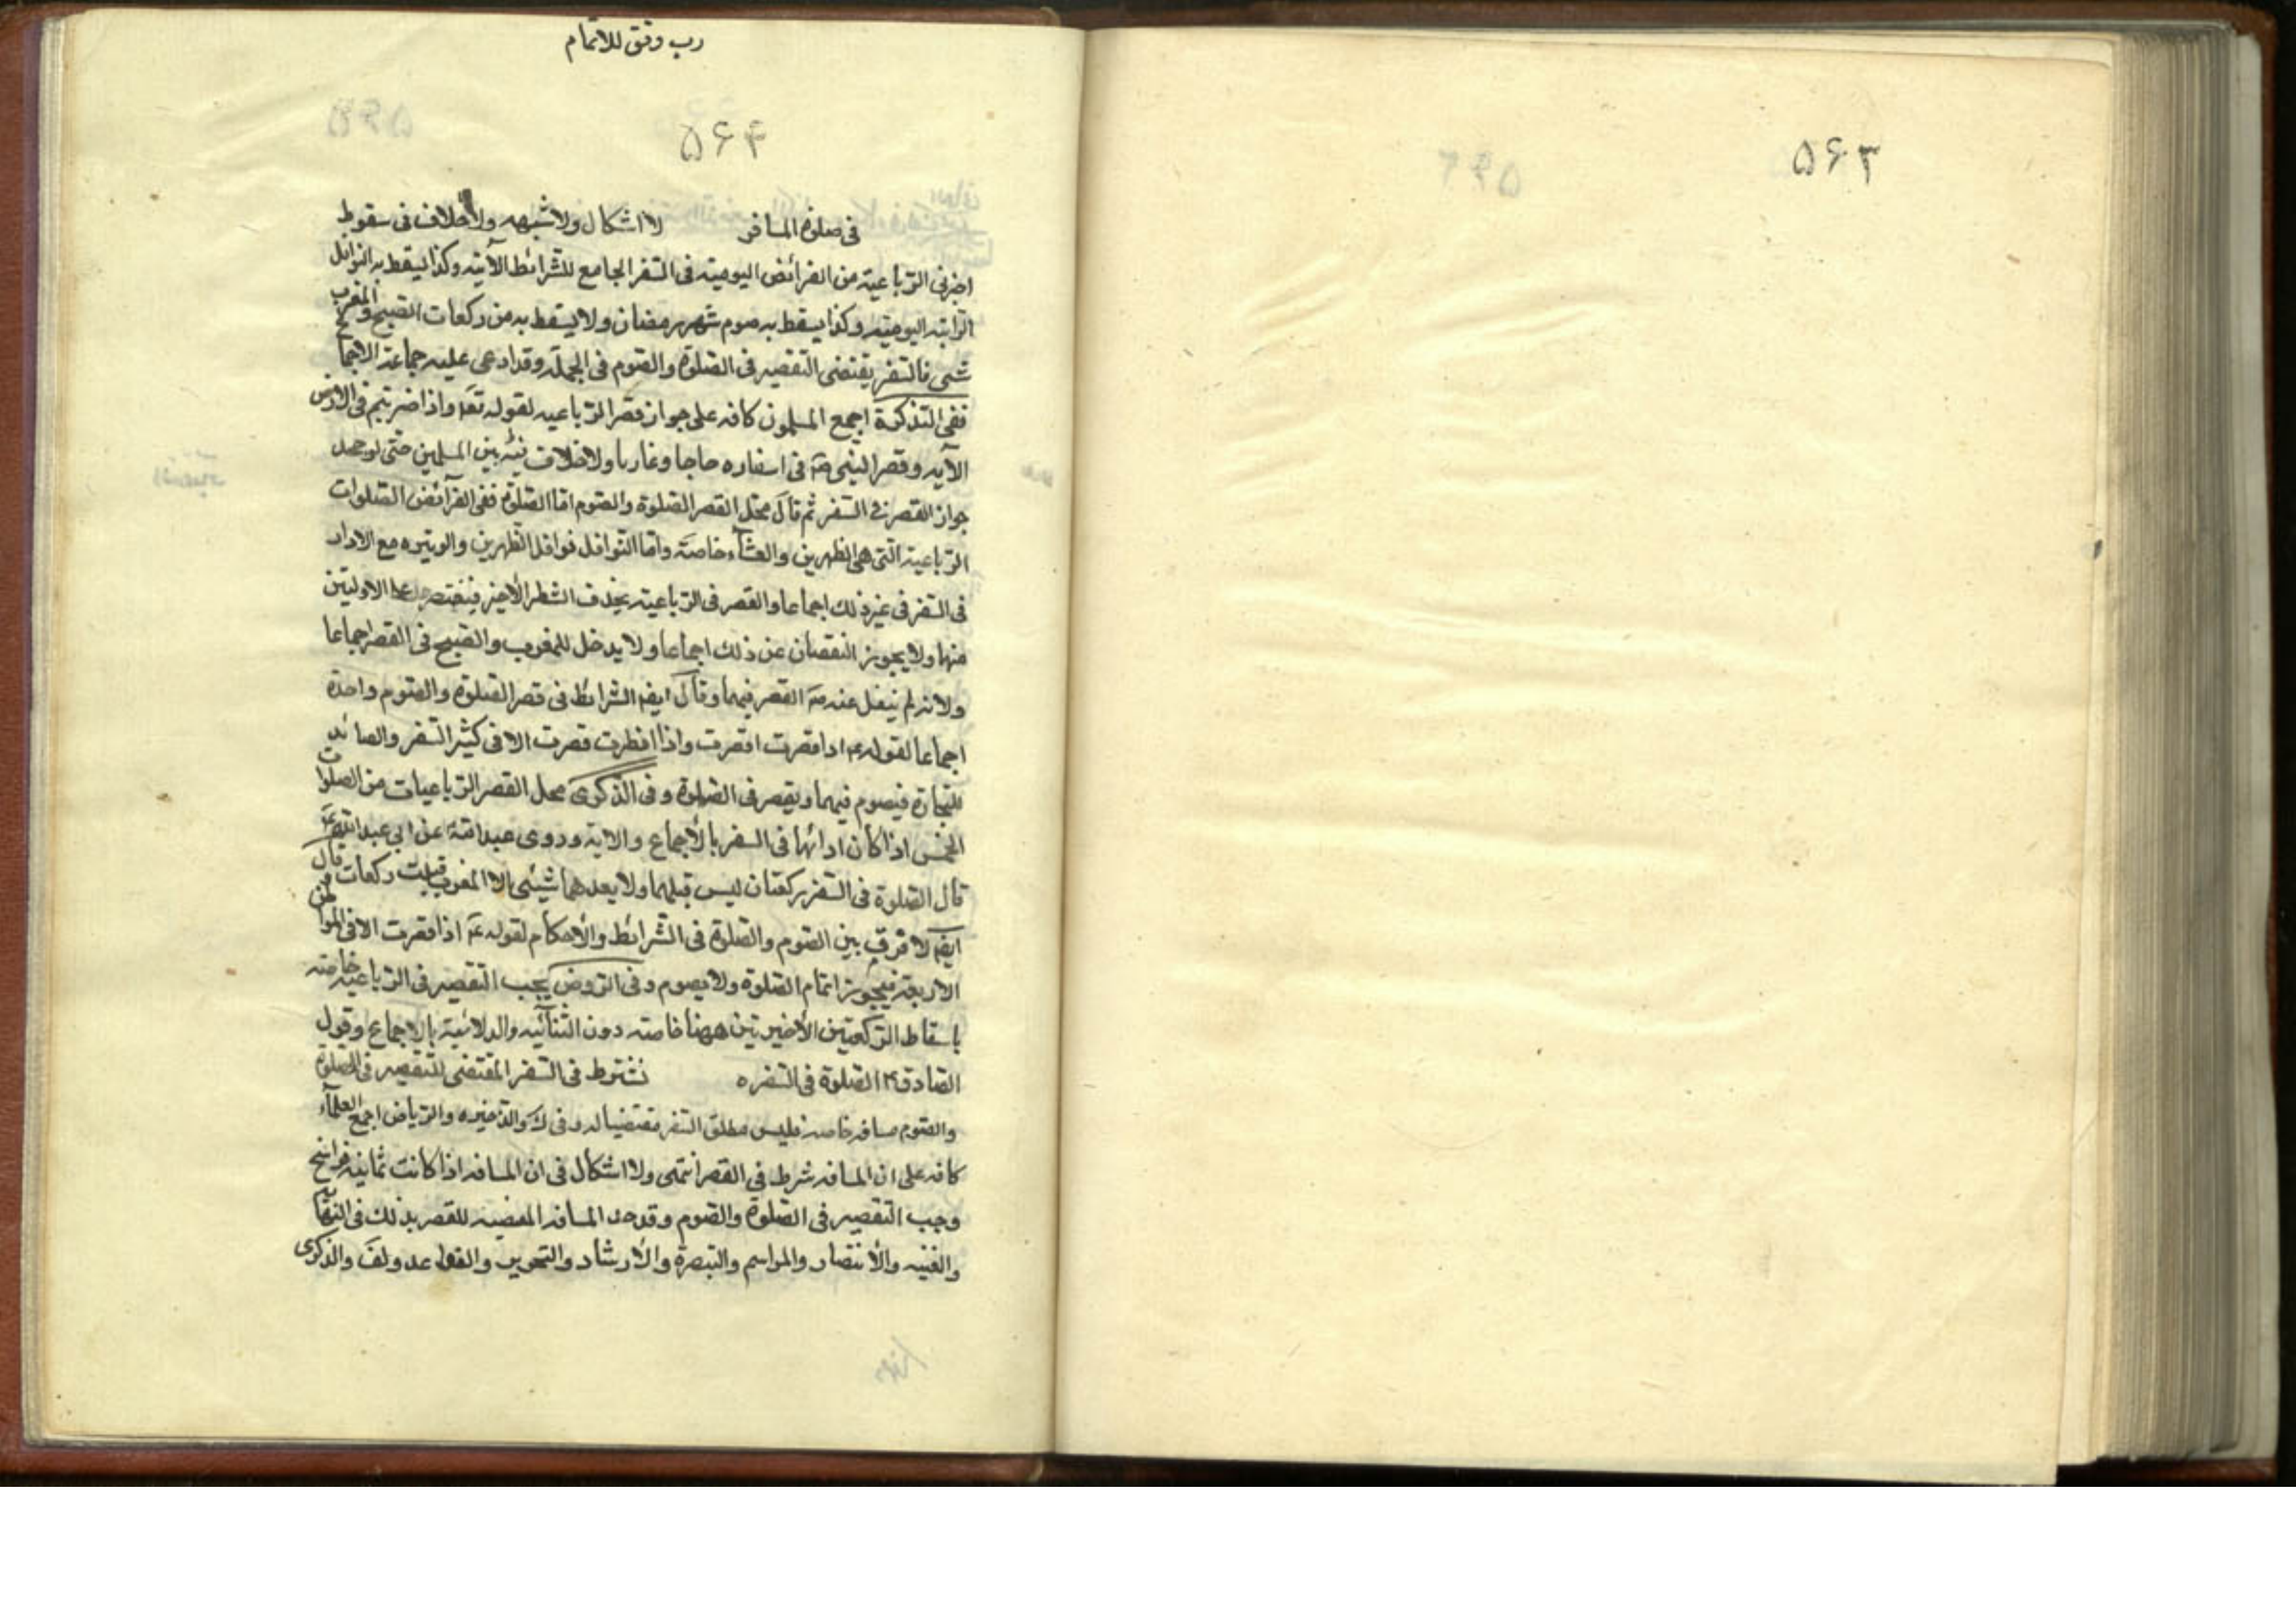 ۵۶۳
رب وفق للاتمام
۵۶۴
فى صلوة المسافر لا اشكال ولا شبهه ولا خلاف فى سقوط
اخرتى الرّباعيّة من الفرائض اليوميّة فى السّفر الجامع للشّرائط الآتية وكذا يسقط به النّوافل
الرّاتبه اليوميّه وكذا يسقط به صوم شهر رمضان ولا يسقط به من ركعات الصّبح والمغرب
شىء فالسّفر يقتضى التقصير فى الصّلوة والصّوم فى الجملة وقد ادعى عليه جماعة الاجما
ففى التّذكرة اجمع المسلمون كافه على جواز قصر الرّباعيه لقوله تعا واذا ضربتم فى الارض
الآيه وقصر النبى صه فى اسفاره حاجا وغازيا ولا خلاف بين المسلمين حتى لو جحد
جواز القصر فى السّفر ثم قال محل القصر الصّلوة والصّوم امّا الصّلوة ففى الفرائض الصّلوات
الرّباعية الّتى هى الظهرين والعشاء خاصّة وامّا النّوافل نوافل الظهرين والوتيره مع الاداء
فى السّفر فى غير ذلك اجماعا والقصر فى الرّباعيّه بحذف الشطر الأخير فيقتصر على الاوليّين
منها ولا يجوز النقصان عن ذلك اجماعا ولا يدخل للمغرب والصّبح فى القصر اجماعا
ولانه لم ينقل عنه صه القصر فيهما وقال ايضا الشرائط فى قصر الصّلوة والصّوم واحدة
اجماعا لقوله ع اذا قصرت افطرت واذا افطرت قصرت الا فى كثير السّفر والصائد
للتّجارة فيصوم فيهما ويقصر فى الصّلوة وفى الذّكرى محل القصر الرّباعيات من الصلوات
الخمس اذا كان ادائها فى السفر بالأجماع والايه وروى عبد الله عن ابى عبد الله ع
قال الصّلوة فى السّفر ركعتان ليس قبلهما ولا بعدهما شيئى الا المغرب ركعات وقال
ايضا لا فرق بين الصّوم والصّلوة فى الشّرائط والأحكام لقوله ع اذا قصرت الا فى المواطن
الاربعة فيجوز اتمام الصّلوة ولا يصوم وفى الرّوض يجب التقصير فى الرّباعيه خاصّه
باسقاط الرّكعتين الأخيرتين ههنا خاصّه دون الثّنائيّه والثلاثيّه بالاجماع وقول
الصّادق ع الصّلوة فى السّفر ه يشترط فى السّفر المقتضى للتقصير فى الصلوة
والصّوم مسافه خاصه فليس مطلق السّفر مقتضيا له وفى ك والذّخيره والرّياض اجمع العلماء
كافه على ان المسافه شرط فى القصر انتهى ولا اشكال فى ان المسافه اذا كانت ثمانيه فراسخ
وجب التقصير فى الصّلوة والصّوم وقد حد المسافه المقتضيه للقصر بذلك فى النهايه
والغنيه والأنتصار والمراسم والتبصرة والأرشاد والتحرير والقواعد ولف والذكرى